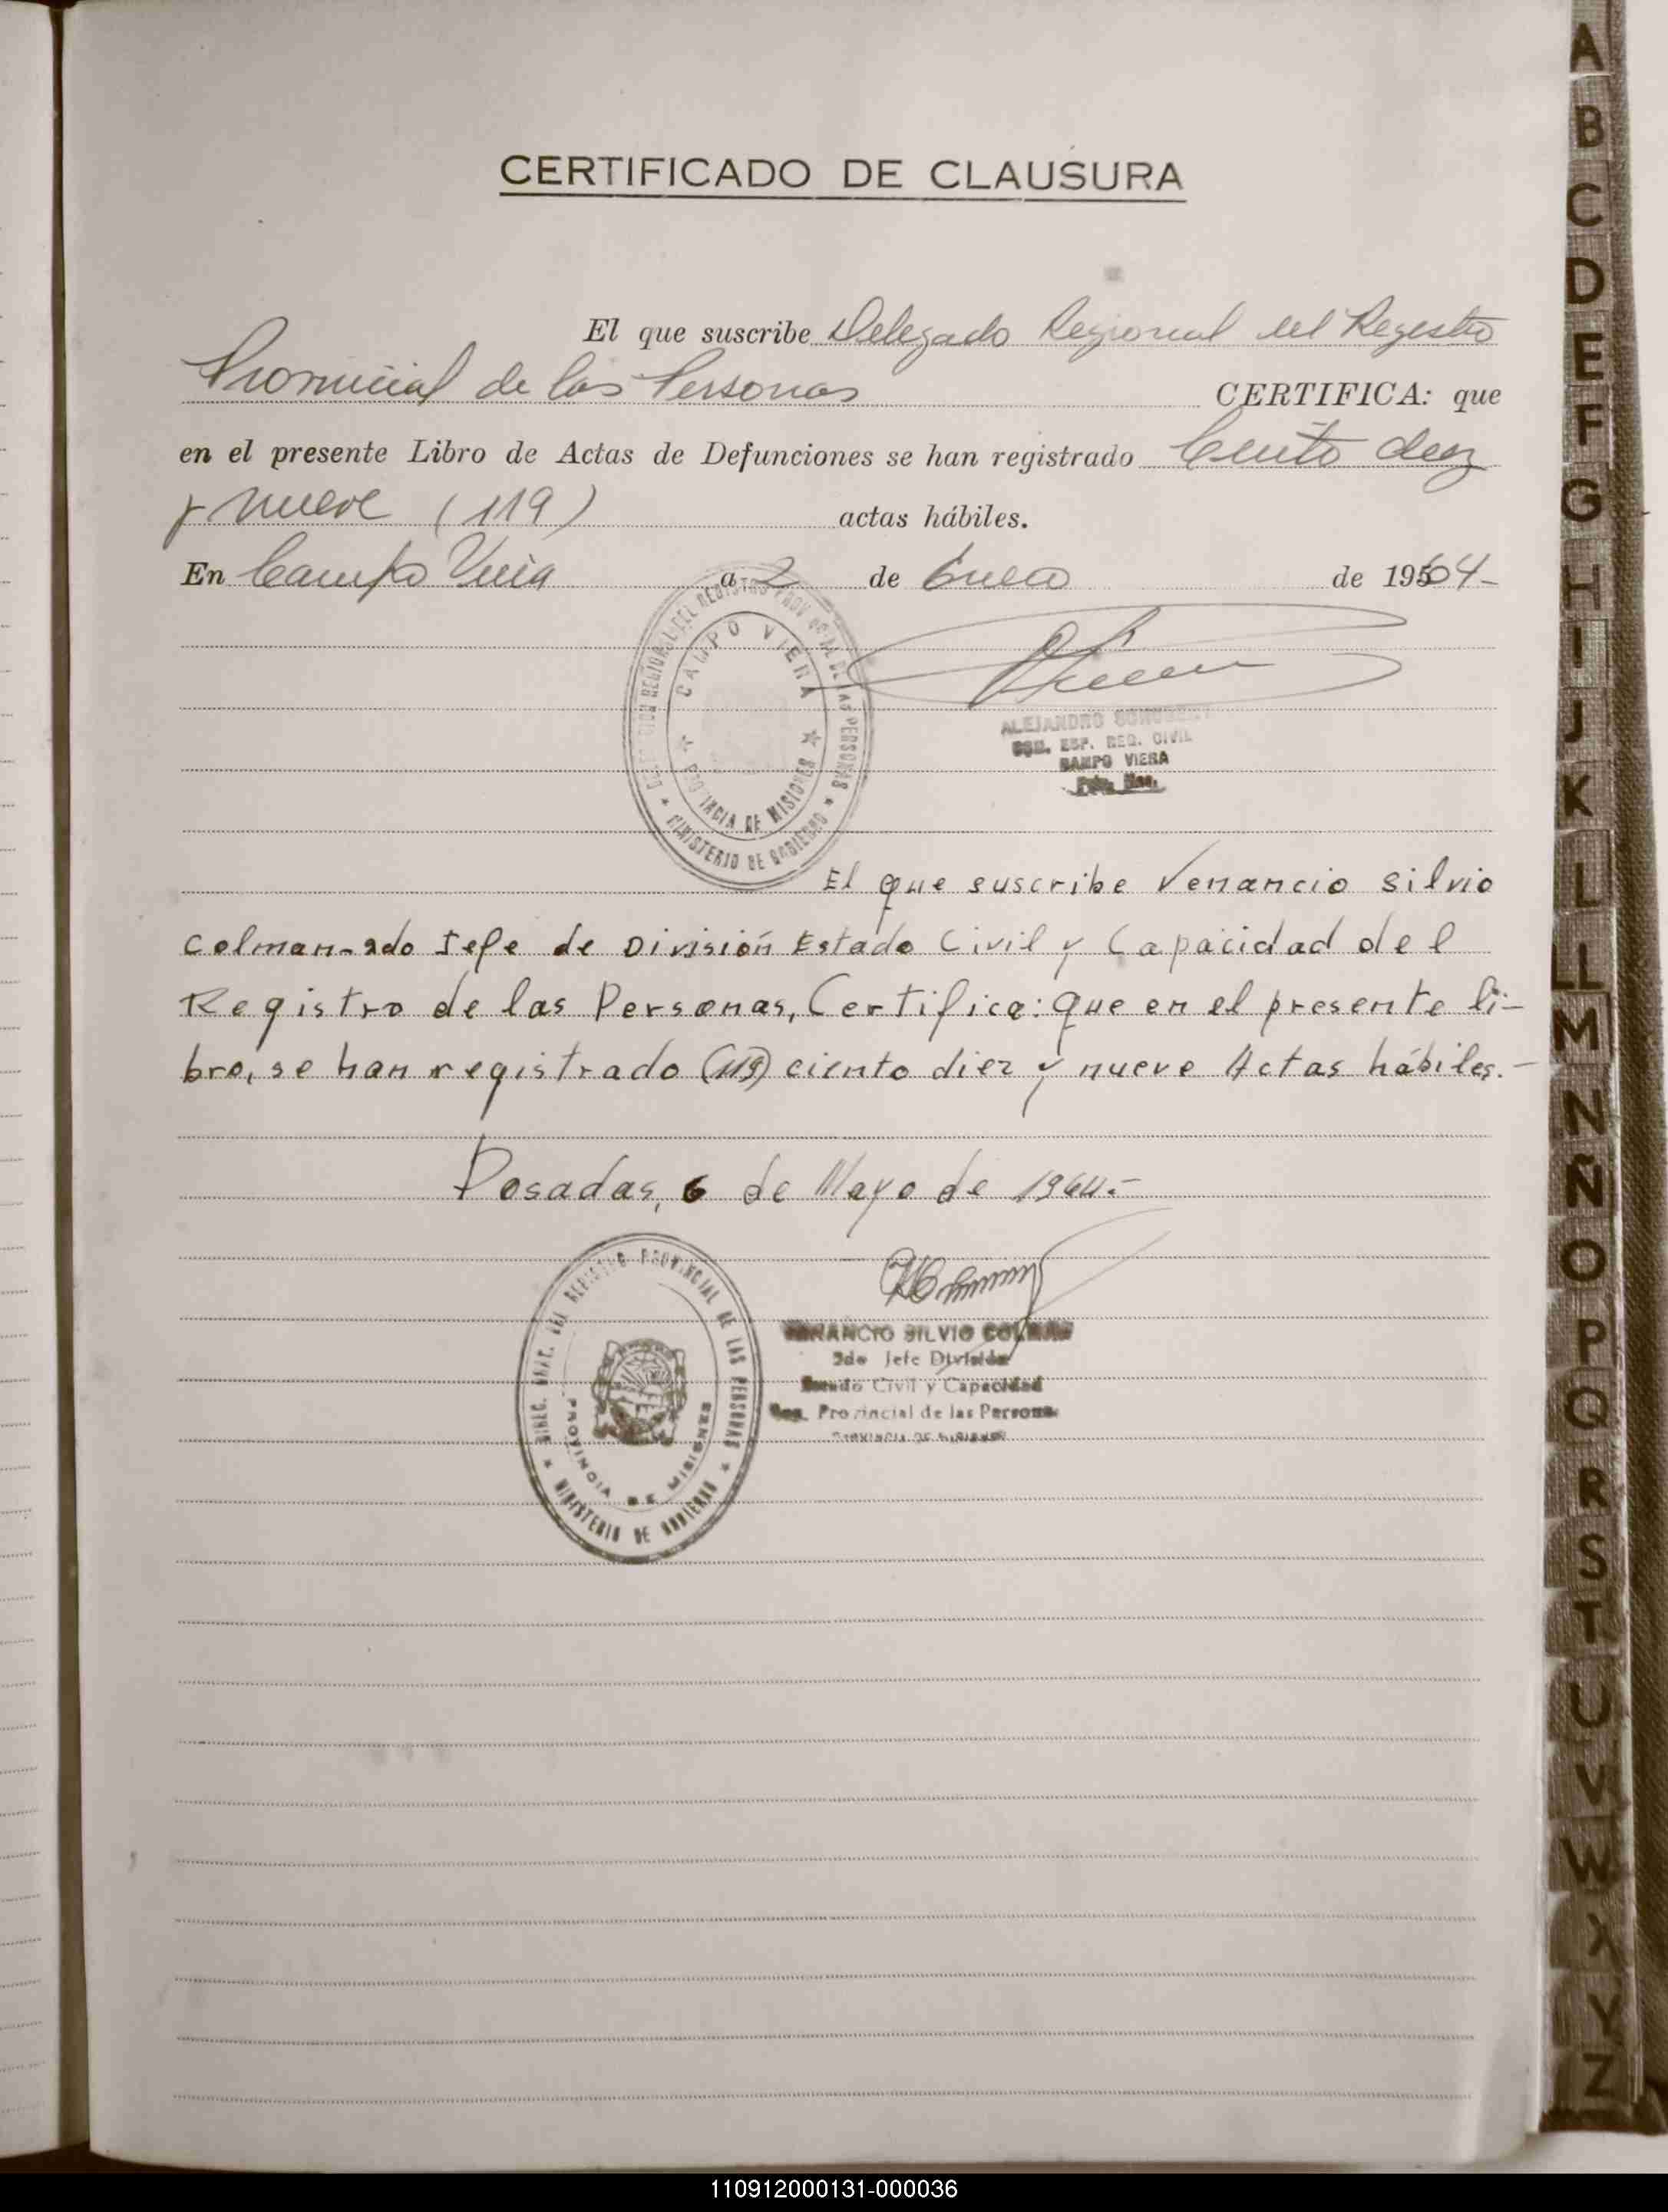 CERTIFICADO DE CLAUSURA
El que suscribe Delegado Regional del Registro
Provincial de las Personas CERTIFICA: que
en el presente Libro de Actas de Defunciones se han registrado Ciento diez
y nueve (119) actas hábiles.
En Campo Viera a 2 de Enero de 1964-
DEL REGISTRO PROVINCIAL DE LAS PERSONAS
CAMPO VIERA
PROVINCIA DE MISIONES
MINISTERIO DE GOBIERNO
ALEJANDRO
ESP. REG. CIVIL
CAMPO VIERA
El que suscribe Venancio Silvio
Colman-2do Jefe de División Estado Civil y Capacidad del
Registro de las Personas, Certifica: que en el presente li-
bro, se han registrado (119) ciento diez y nueve Actas hábiles.-
Posadas, 6 de Mayo de 1964.-
DIREC. GRAL. DEL REGISTRO PROVINCIAL DE LAS PERSONAS
PROVINCIA DE MISIONES
MINISTERIO DE GOBIERNO
VENANCIO SILVIO COLMAN
2do Jefe División
Estado Civil y Capacidad
Reg. Provincial de las Personas
PROVINCIA DE MISIONES
A
B
C
D
E
F
G
H
I
J
K
L
LL
M
N
Ñ
O
P
Q
R
S
T
U
V
W
X
Y
Z
110912000131-000036